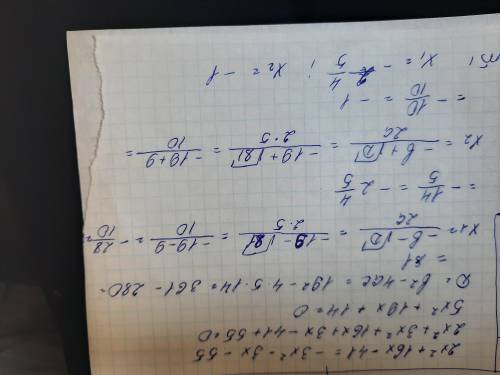 2x² + 16x - 41 = -3x² - 3x - 55
2x² + 3x² + 16x + 3x - 41 + 55 = 0
5x² + 19x + 14 = 0
D = b² - 4ac = 19² - 4·5·14 = 361 - 280 =
= 81
x₁ = (-b - √D)/2c = (-19 - √81)/2·5 = (-19 - 9)/10 = -28/10 =
= -14/5 = -2 4/5
x₂ = (-b + √D)/2c = (-19 + √81)/2·5 = (-19 + 9)/10 =
= -10/10 = -1
x₁ = -2 4/5 ; x₂ = -1